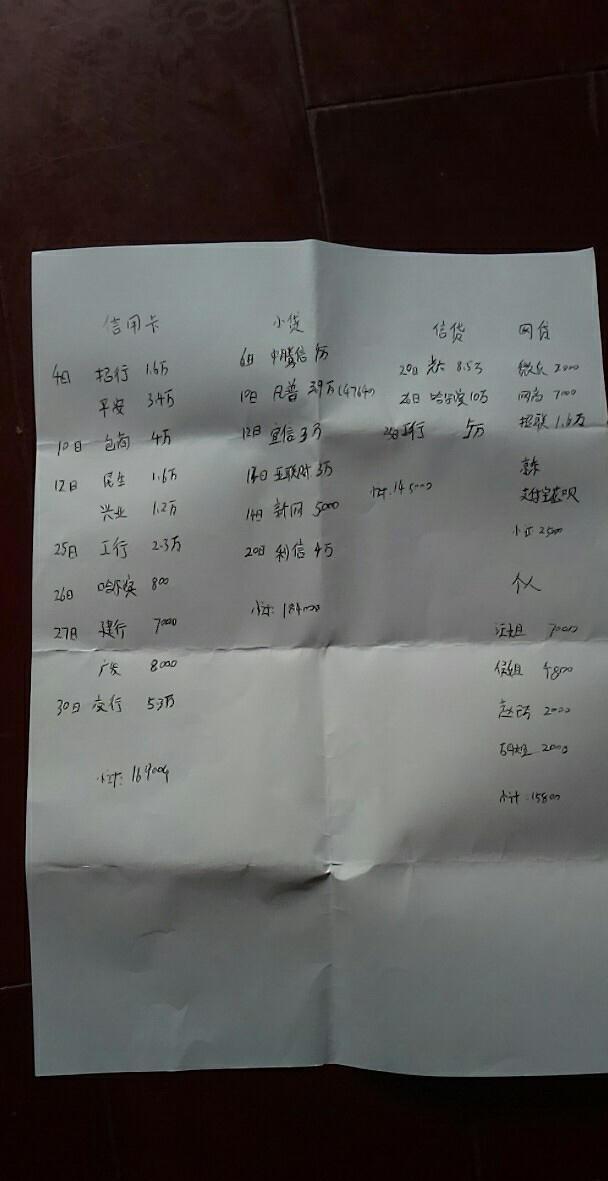 信用卡
4日 招行 1.6万
平安 3.4万
10日 包商 4万
12日 民生 1.6万
兴业 1.2万
25日 工行 2.3万
26日 哈尔滨 800
27日 建行 7000
广发 8000
30日 交行 5.3万
小计:
小贷
6日 中腾信
10日 凡普 3.9万(4764)
12日 宜信 3万
互联财 3万
14日 新网 5000
20日 利信 4万
小计: 184000
信贷
20日 光大 8.5万
26日 哈尔滨 10万
工行 5万
小计: 145000
网贷
微众 2000
网商 7000
招联 1.6万
京东
支付宝花呗
小计 25000
个人
汪姐 7000
侯姐 4800
2000
2000
小计: 15800